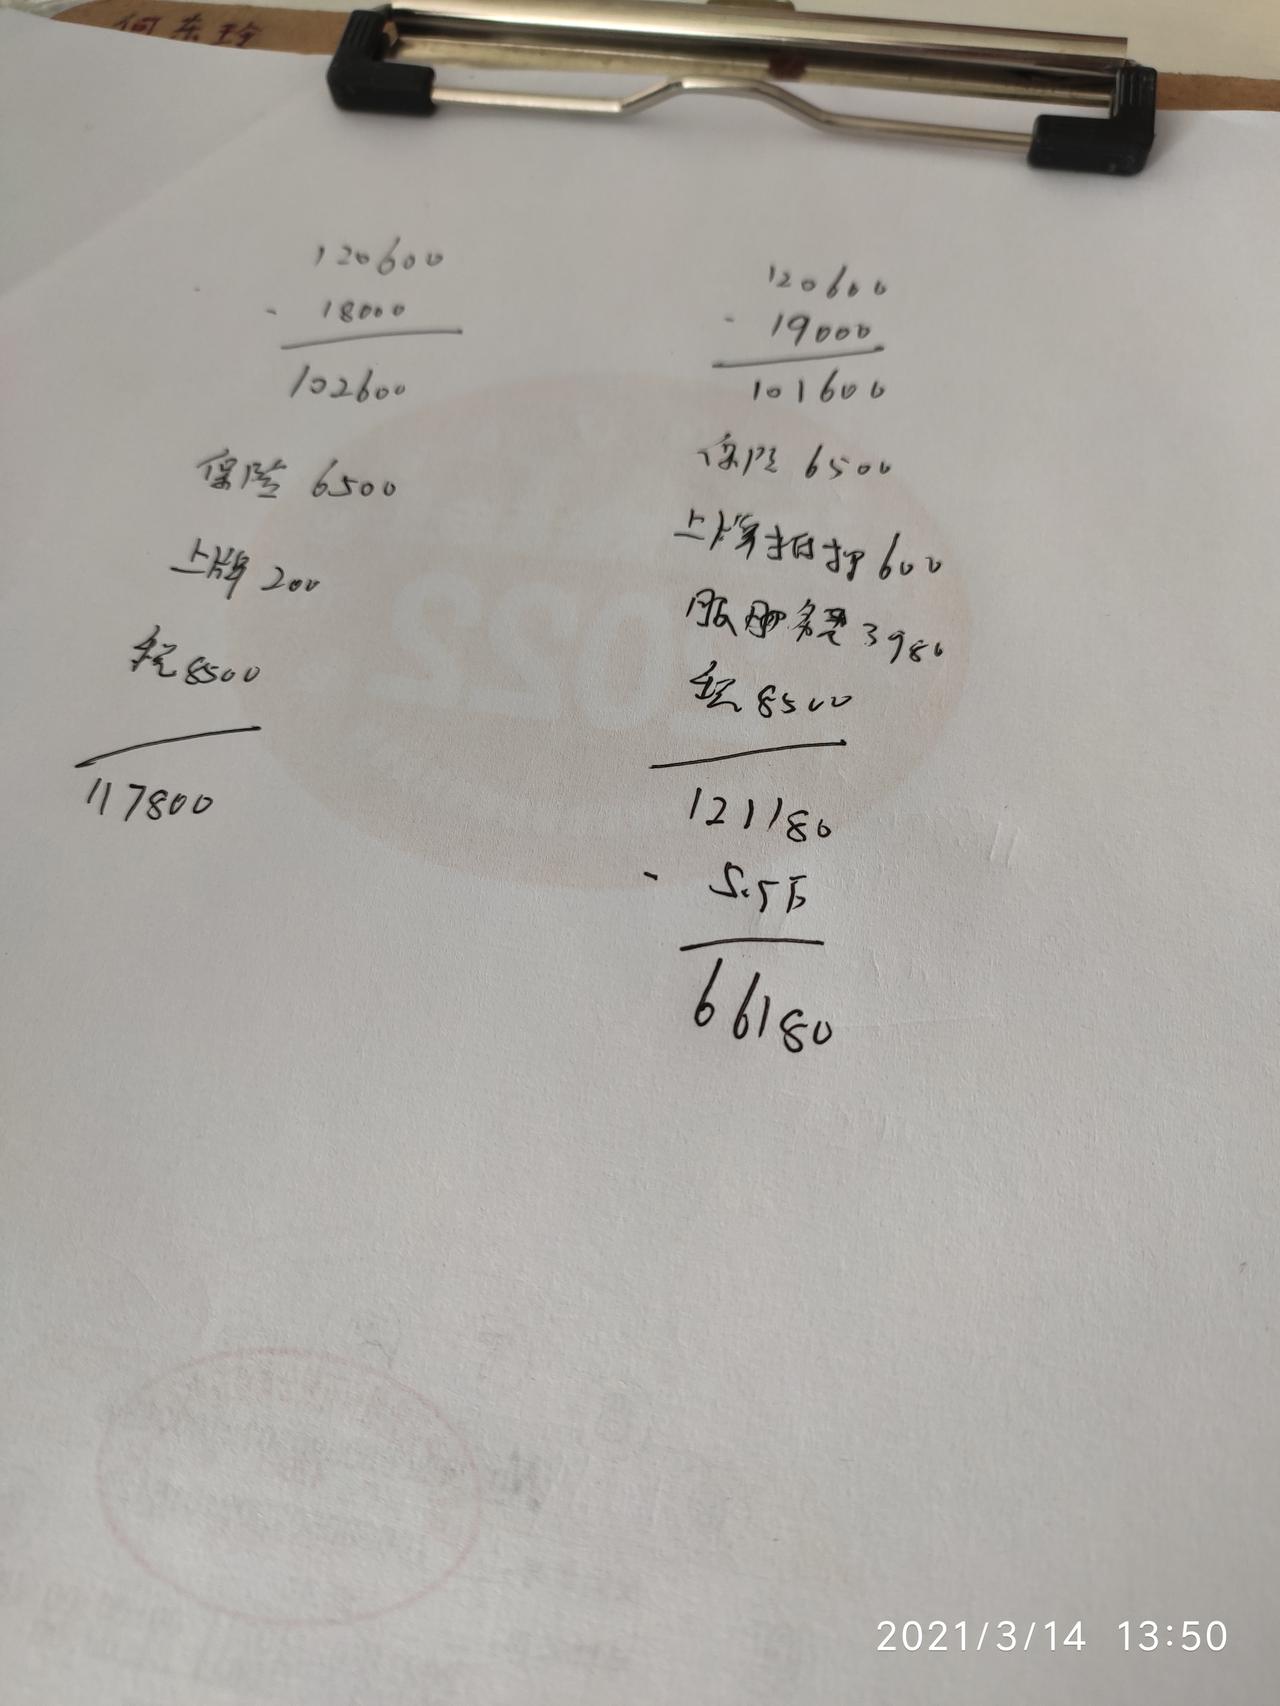 何东玲
120600
- 18000
102600
保险 6500
上牌 200
税 8500
117800
120600
- 19000
101600
保险 6500
上牌抵押 600
服务费 3980
税 8500
121180
- 5.5万
66180
2021/3/14 13:50